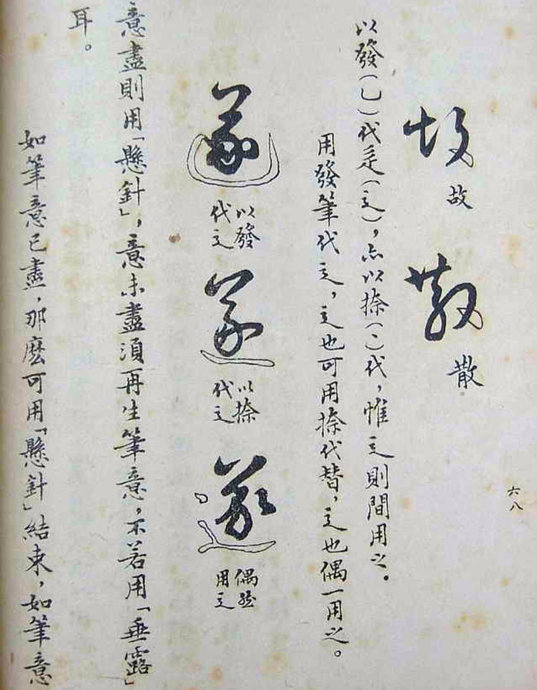 六八
故 故 散 散
以發(乚)代辵(辶),亦以捺(㇏)代,惟辶則間用之。
用發筆代辶,辶也可用捺代替,辶也偶一用之。
遂 以發代辶 遂 以捺代辶 遂 偶然用辶
意盡則用「懸針」,意未盡須再生筆意,不若用「垂露」
耳。
如筆意已盡,那麽可用「懸針」結束,如筆意